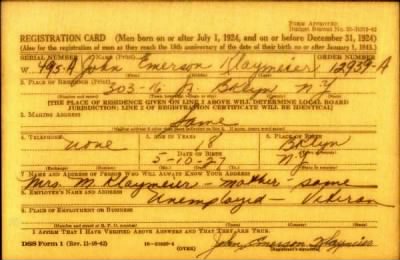 Form Approved
REGISTRATION CARD (Men born on or after July 1, 1924, and on or before December 31, 1924)
(Also for the registration of men as they reach the 18th anniversary of the date of their birth on or after January 1, 1943.)
SERIAL NUMBER 1. NAME (Print) ORDER NUMBER
W. 495-A John Emerson 12939-A
(First) (Middle) (Last)
2. PLACE OF RESIDENCE (Print)
303- Bklyn N.Y.
[THE PLACE OF RESIDENCE GIVEN ON LINE 2 ABOVE WILL DETERMINE LOCAL BOARD
JURISDICTION; LINE 2 OF REGISTRATION CERTIFICATE WILL BE IDENTICAL]
3. MAILING ADDRESS
Same
4. TELEPHONE 5. AGE IN YEARS 6. PLACE OF BIRTH
none 18 Bklyn
DATE OF BIRTH
5-10-27 N.Y.
(Exchange) (Number) (Mo.) (Day) (Yr.) (State or country)
7. NAME AND ADDRESS OF PERSON WHO WILL ALWAYS KNOW YOUR ADDRESS
Mrs. M. - mother - same
8. EMPLOYER'S NAME AND ADDRESS
Unemployed - Veteran
9. PLACE OF EMPLOYMENT OR BUSINESS
I AFFIRM THAT I HAVE VERIFIED ABOVE ANSWERS AND THAT THEY ARE TRUE.
DSS Form 1 (Rev. 11-16-42) (OVER) John Emerson